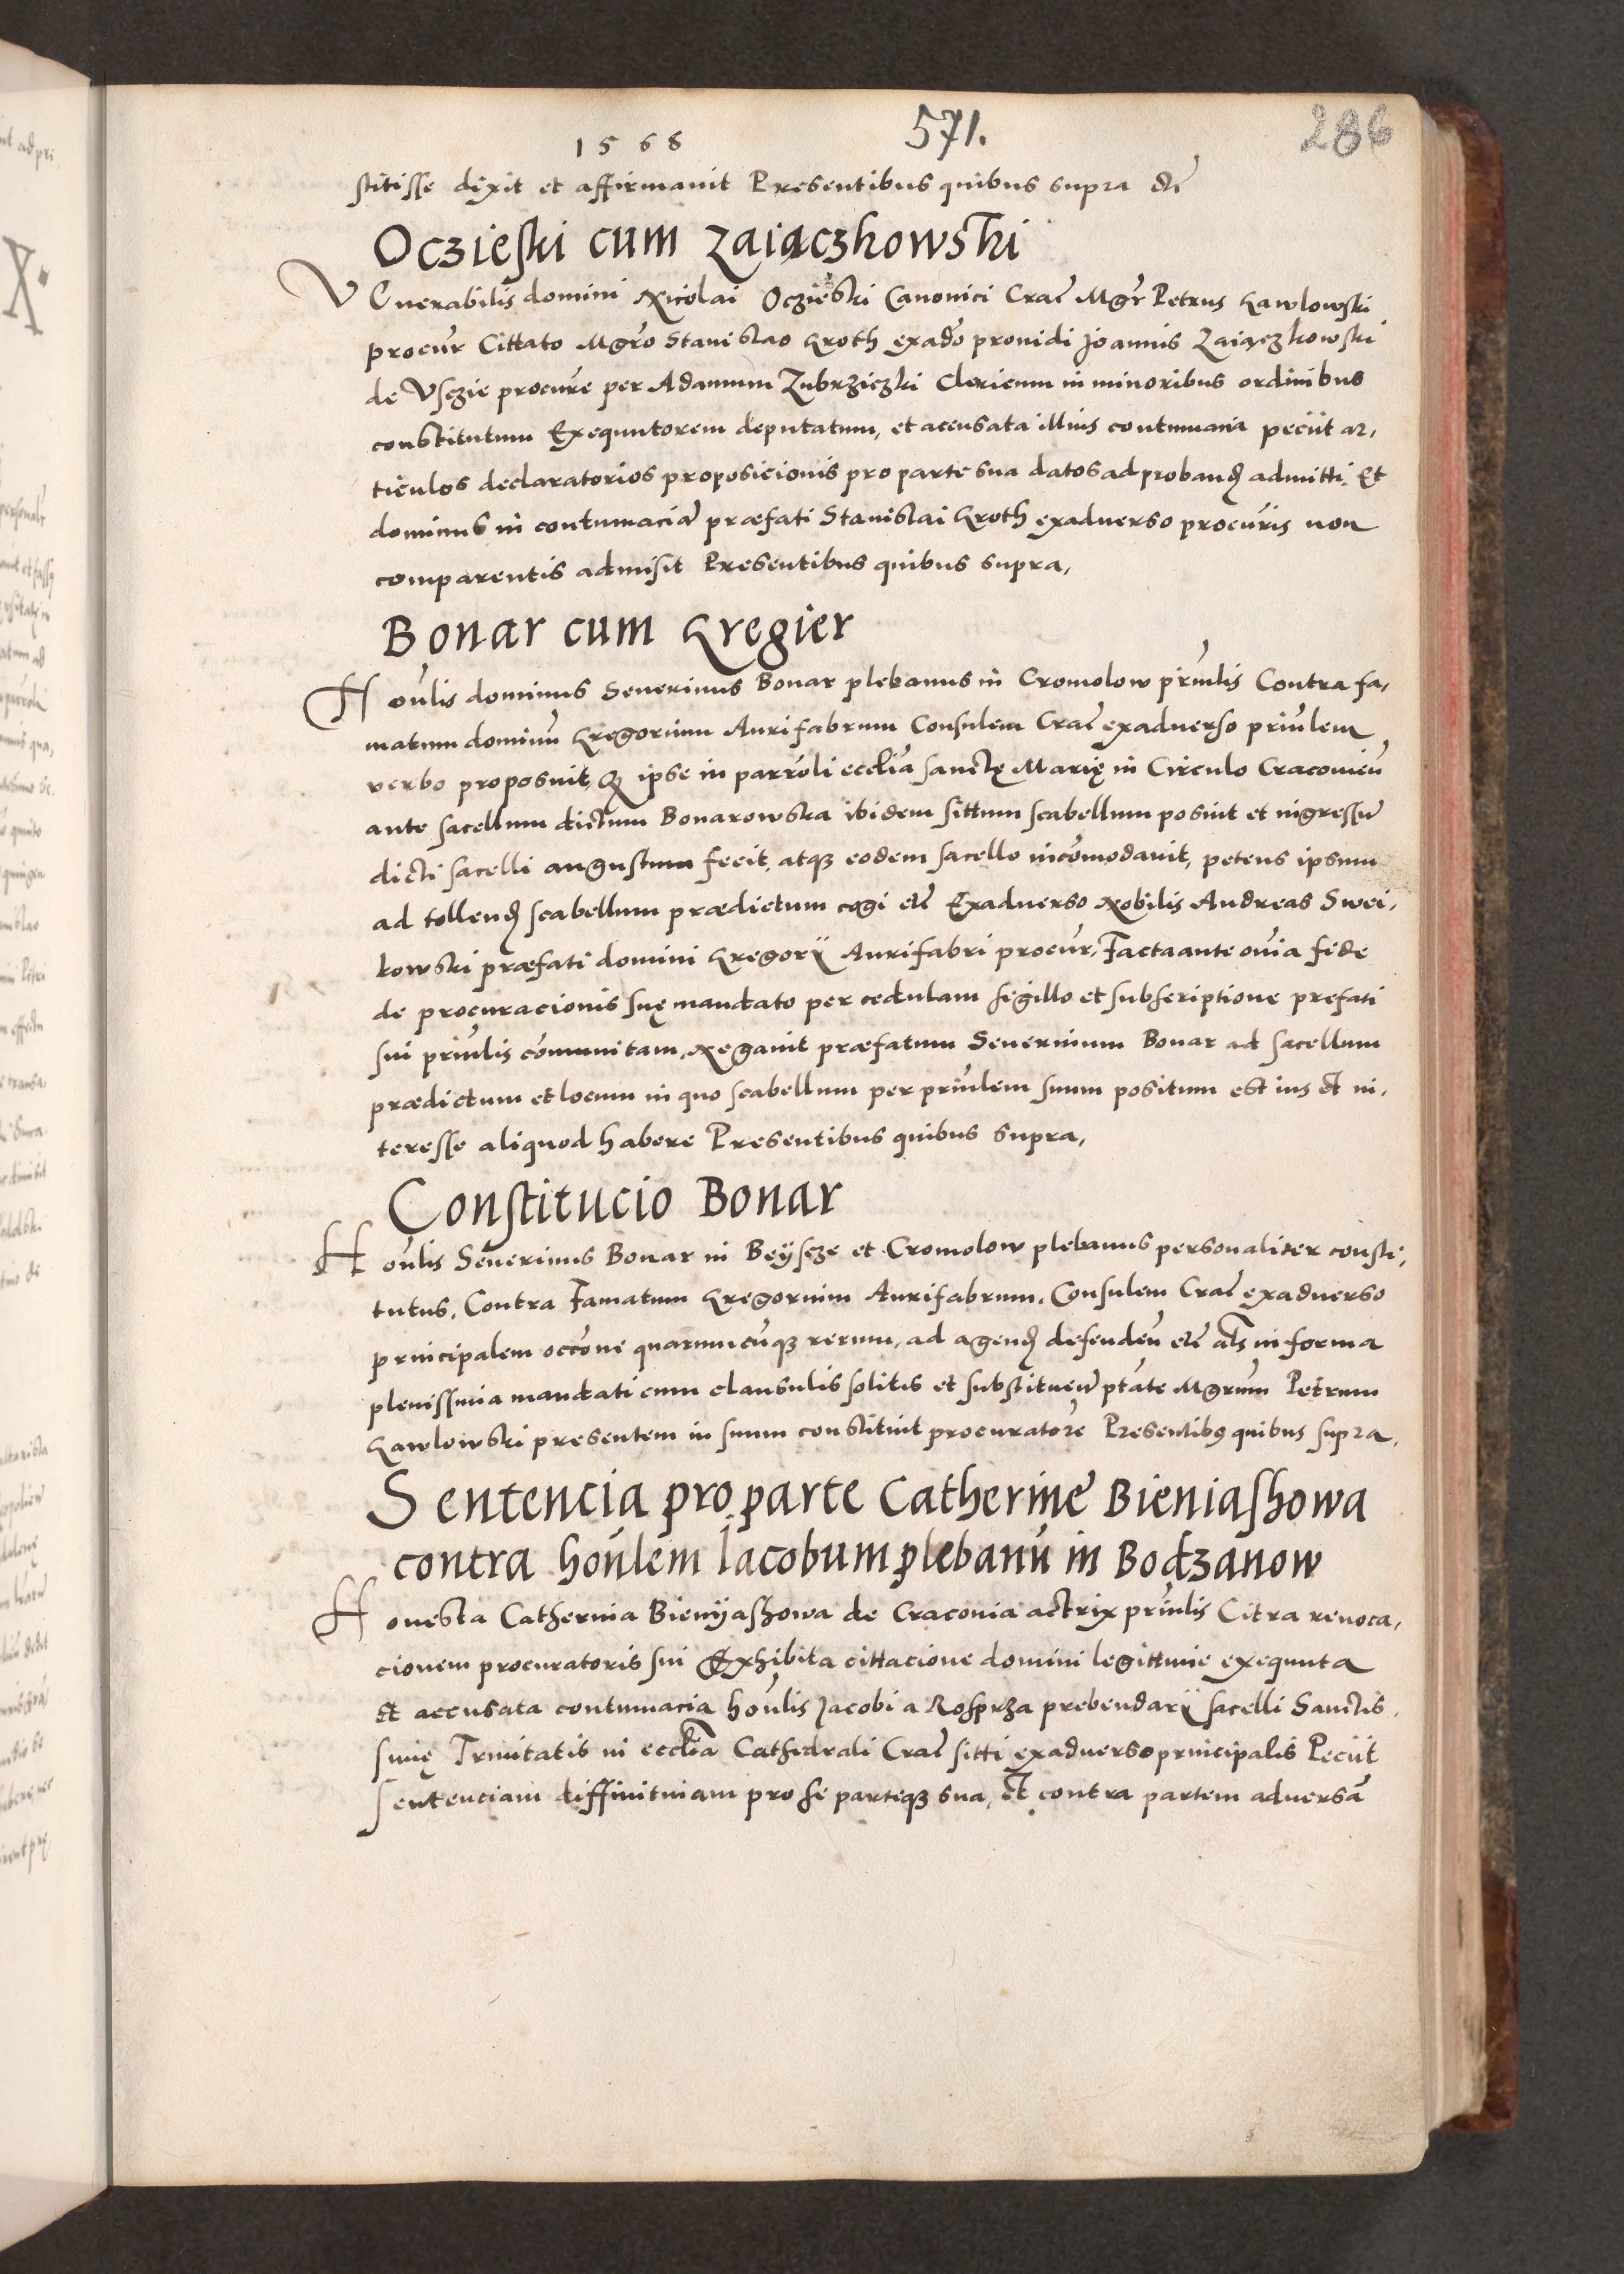 1568 571. 286
stitisse dixit et affirmavit Presentibus quibus supra
Oczieski cum Zaiączkowski
VEnerabilis domini Nicolai Oczieski Canonici Crac̄ Mgr̄ Petrus Gawlowski
procur̄ Cittato Mgr̄o Stanislao Groth exad̄o providi Joannis Zaiączkowski
de Vsczie procur̄e per Adamum Zubrziczki Clericum in minoribus ordinibus
constitutum Exequutorem deputatum, et accusata illius contumacia peciit ar,
ticulos declaratorios proposicionis pro parte sua datos ad proband̄ admitti. Et
dominus in contumaciā præfati Stanislai Groth exadverso procur̄is non
comparentis admisit Presentibus quibus supra,
Bonar cum Gregier
Hon̄lis dominus Severinus Bonar plebanus in Cromolow prin̄lis Contra fa,
matum dominū Gregorium Aurifabrum Consulem Crac̄ exadverso prin̄lem
verbo proposuit, Qz ipse in parr̄oli eccl̄ia sanctę Marię in Circulo Cracovien̄
ante sacellum dictum Bonarowska ibidem sittum scabellum posuit et ingressū
dicti sacelli angustum fecit, atqz eodem sacello incōmodavit, petens ipsum
ad tollend̄ scabellum prædictum cogi etc̄ Exadverso Nobilis Andreas Swei,
kowski præfati domini Gregorii Aurifabri procur̄, Facta ante om̄ia fide
de procuracionis suę mandato per cedulam sigillo et subscriptione prefati
sui prin̄lis cōmunitam, Negavit præfatum Severinum Bonar ad sacellum
prædictum et locum in quo scabellum per prin̄lem suum positum est ius et in,
teresse aliquod habere Presentibus quibus supra,
Constitucio Bonar
Hon̄lis Severinus Bonar in Beÿscze et Cromolow plebanus personaliter consti,
tutus, Contra Famatum Gregorium Aurifabrum, Consulem Crac̄ exadverso
principalem occōne quarumcūqz rerum, ad agend̄ defenden̄ etc̄ al̄s in forma
plenissima mandati cum clausulis solitis et substituen̄ pt̄ate Mgr̄um Petrum
Gawlowski presentem in suum constituit procuratorē Presentibus quibus supra,
Sentencia pro parte Catherinę Bieniashowa
contra hon̄lem Iacobum plebanū in Bodzanow
Honesta Catherina Bienÿashowa de Cracovia actrix prin̄lis Citra revoca,
cionem procuratoris sui Exhibita cittacione domini legittime exequuta
et accusata contumacia hon̄lis Jacobi a Rosprza prebendarii sacelli Sanctis,
simę Trinitatis in eccl̄ia Cathedrali Crac̄ sitti exadverso principalis Peciit
sentenciam diffinitivam pro se parteqz sua, et contra partem adversā